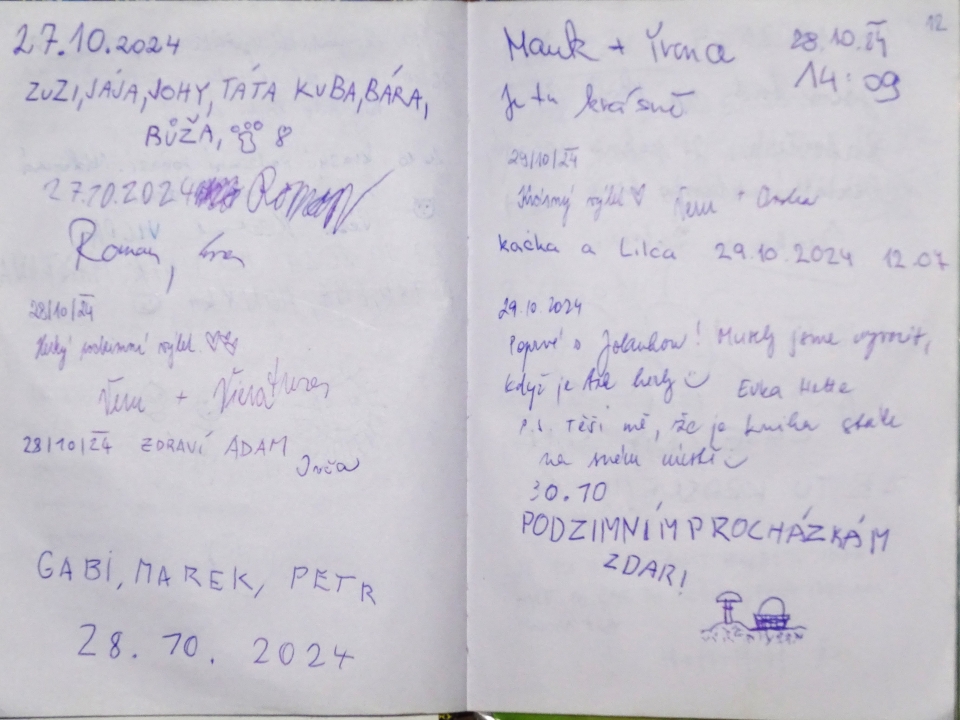 27.10.2024
ZUZI, JÁJA, JOHY, TÁTA KUBA, BÁRA,
BŮŽA,
27.10.2024 Roman
Roman,
28/10/24
Hezký podzimní výlet
+
28/10/24 ZDRAVÍ ADAM
GABI, MAREK, PETR
28. 10. 2024
12
+ 28.10.24
14:09
Je tu krásně
29/10/24
Krásný výlet
Kačka a Lilča 29.10.2024 12.07
29.10 2024
Poprvé Museli jsme
když je
P.S. Těší mě, že je kniha stále
na svém místě
30.10
PODZIMNÍM PROCHÁZKÁM
ZDAR!